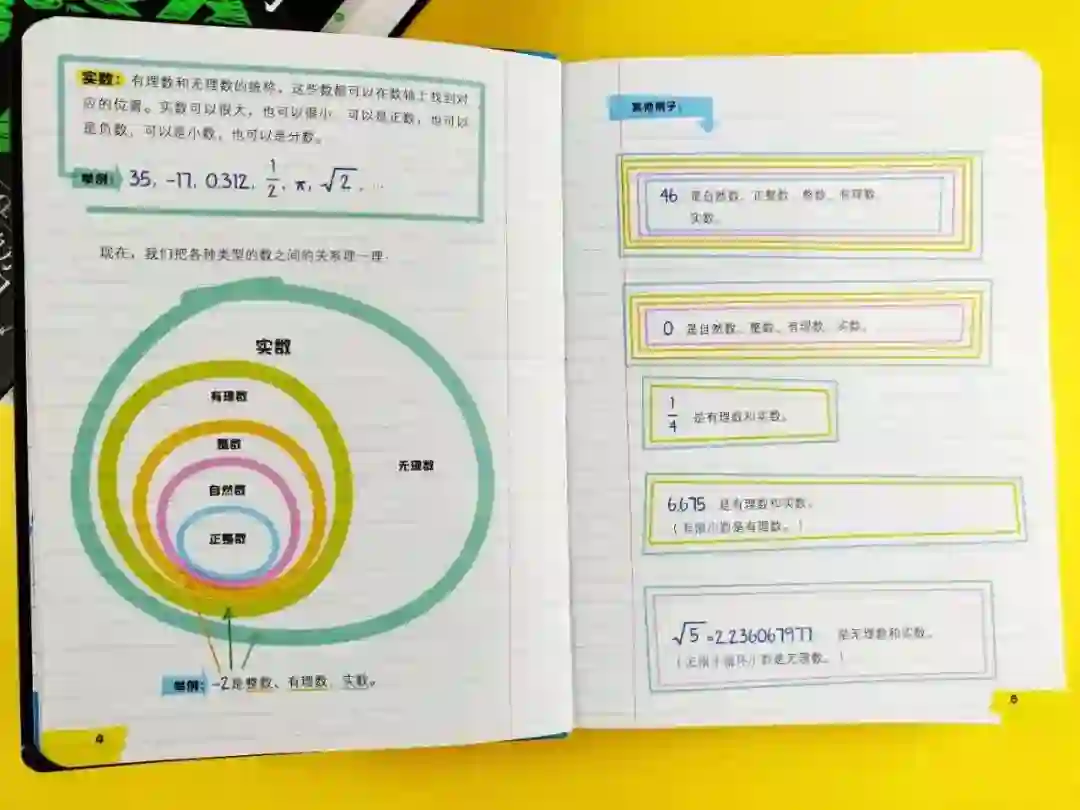 实数：有理数和无理数的统称。这些数都可以在数轴上找到对
应的位置。实数可以很大，也可以很小 可以是正数，也可以
是负数，可以是小数，也可以是分数。
举例：35, -17, 0.312, 1/2, π, √2, …
现在，我们把各种类型的数之间的关系理一理.
实数
有理数
整数
无理数
自然数
正整数
举例：-2是整数、有理数、实数。
4
其他例子：
46 是自然数、正整数、整数、有理数、
实数。
0 是自然数、整数、有理数、实数。
1/4 是有理数和实数。
6.675 是有理数和实数。
（有限小数是有理数。）
√5=2.236067977 是无理数和实数。
（无限不循环小数是无理数。）
5